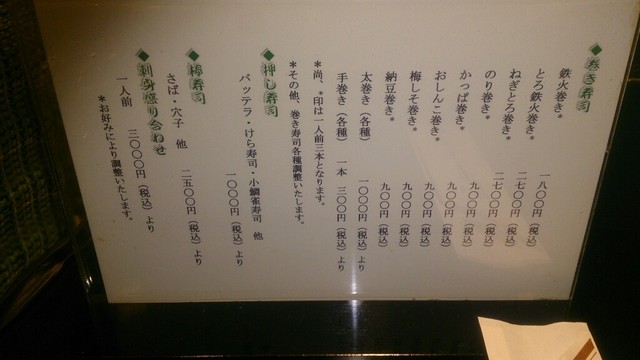 ◆巻き寿司
鉄火巻き* 一八〇〇円（税込）
とろ鉄火巻き* 二七〇〇円（税込）
ねぎとろ巻き* 二七〇〇円（税込）
のり巻き* 九〇〇円（税込）
かっぱ巻き* 九〇〇円（税込）
おしんこ巻き* 九〇〇円（税込）
梅しそ巻き* 九〇〇円（税込）
納豆巻き* 九〇〇円（税込）
太巻き（各種） 一〇〇〇円（税込）より
手巻き（各種） 一本 三〇〇円（税込）より
*尚、*印は一人前三本となります。
*その他、巻き寿司各種調整いたします。
◆押し寿司
バッテラ・けら寿司・小鯛雀寿司 他
一〇〇〇円（税込）より
◆棒寿司
さば・穴子 他 二五〇〇円（税込）より
◆刺身盛り合わせ
一人前 三〇〇〇円（税込）より
*お好みにより調整いたします。